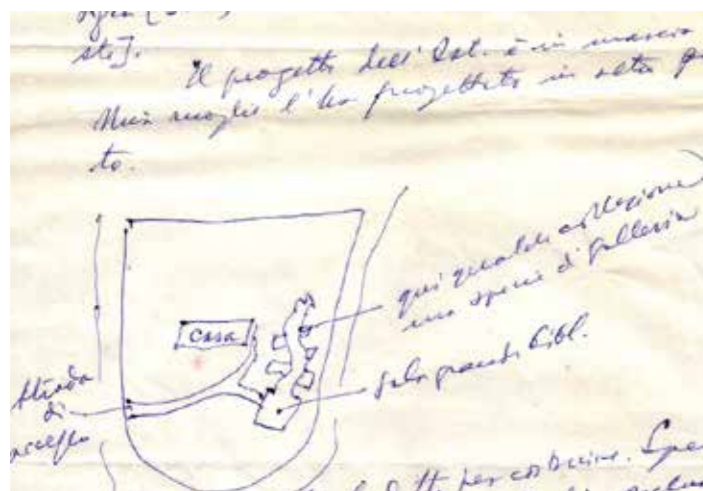 ste].
Il progetto dell'Ist. è in marcia
Mia moglie l'ha progettato in
to.
qui quadri collezione
una specie di galleria
casa
sala grande bibl.
strada
di
accesso
per costruire.